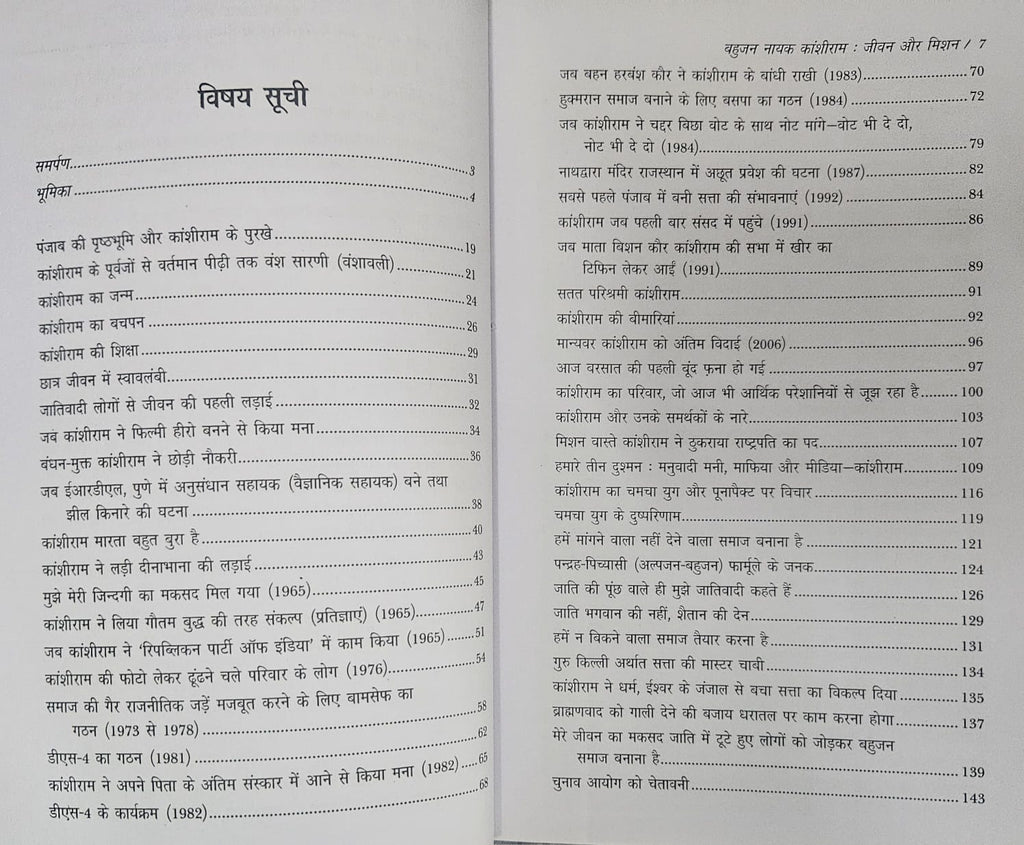 विषय सूची
समर्पण..........3
भूमिका..........4
पंजाब की पृष्ठभूमि और कांशीराम के पुरखे..........19
कांशीराम के पूर्वजों से वर्तमान पीढ़ी तक वंश सारणी (वंशावली)..........21
कांशीराम का जन्म..........24
कांशीराम का बचपन..........26
कांशीराम की शिक्षा..........29
छात्र जीवन में स्वावलंबी..........31
जातिवादी लोगों से जीवन की पहली लड़ाई..........32
जब कांशीराम ने फिल्मी हीरो बनने से किया मना..........34
बंधन-मुक्त कांशीराम ने छोड़ी नौकरी..........36
जब ईआरडीएल, पुणे में अनुसंधान सहायक (वैज्ञानिक सहायक) बने तथा
झील किनारे की घटना..........38
कांशीराम मारता बहुत बुरा है..........40
कांशीराम ने लड़ी दीनाभाना की लड़ाई..........43
मुझे मेरी जिन्दगी का मकसद मिल गया (1965)..........45
कांशीराम ने लिया गौतम बुद्ध की तरह संकल्प (प्रतिज्ञाएं) (1965)..........47
जब कांशीराम ने ‘रिपब्लिकन पार्टी ऑफ इंडिया’ में काम किया (1965)..........51
कांशीराम की फोटो लेकर ढूंढ़ने चले परिवार के लोग (1976)..........54
समाज की गैर राजनीतिक जड़ें मजबूत करने के लिए बामसेफ का
गठन (1973 से 1978)..........58
डीएस-4 का गठन (1981)..........62
कांशीराम ने अपने पिता के अंतिम संस्कार में आने से किया मना (1982)..........65
डीएस-4 के कार्यक्रम (1982)..........68
बहुजन नायक कांशीराम : जीवन और मिशन / 7
जब बहन हरबंश कौर ने कांशीराम के बांधी राखी (1983)..........70
हुक्मरान समाज बनाने के लिए बसपा का गठन (1984)..........72
जब कांशीराम ने चद्दर बिछा वोट के साथ नोट मांगे—वोट भी दे दो,
नोट भी दे दो (1984)..........79
नाथद्वारा मंदिर राजस्थान में अछूत प्रवेश की घटना (1987)..........82
सबसे पहले पंजाब में बनी सत्ता की संभावनाएं (1992)..........84
कांशीराम जब पहली बार संसद में पहुंचे (1991)..........86
जब माता बिशन कौर कांशीराम की सभा में खीर का
टिफिन लेकर आईं (1991)..........89
सतत परिश्रमी कांशीराम..........91
कांशीराम की बीमारियां..........92
मान्यवर कांशीराम को अंतिम विदाई (2006)..........96
आज बरसात की पहली बूंद फ़ना हो गई..........97
कांशीराम का परिवार, जो आज भी आर्थिक परेशानियों से जूझ रहा है..........100
कांशीराम और उनके समर्थकों के नारे..........103
मिशन वास्ते कांशीराम ने ठुकराया राष्ट्रपति का पद..........107
हमारे तीन दुश्मन : मनुवादी मनी, माफिया और मीडिया—कांशीराम..........109
कांशीराम का चमचा युग और पूनापैक्ट पर विचार..........116
चमचा युग के दुष्परिणाम..........119
हमें मांगने वाला नहीं देने वाला समाज बनाना है..........121
पन्द्रह-पिच्यासी (अल्पजन-बहुजन) फार्मूले के जनक..........124
जाति की पूंछ वाले ही मुझे जातिवादी कहते हैं..........126
जाति भगवान की नहीं, शैतान की देन..........129
हमें न बिकने वाला समाज तैयार करना है..........131
गुरु किल्ली अर्थात सत्ता की मास्टर चाबी..........134
कांशीराम ने धर्म, ईश्वर के जंजाल से बचा सत्ता का विकल्प दिया..........135
ब्राह्मणवाद को गाली देने की बजाय धरातल पर काम करना होगा..........137
मेरे जीवन का मकसद जाति में टूटे हुए लोगों को जोड़कर बहुजन
समाज बनाना है..........139
चुनाव आयोग को चेतावनी..........143